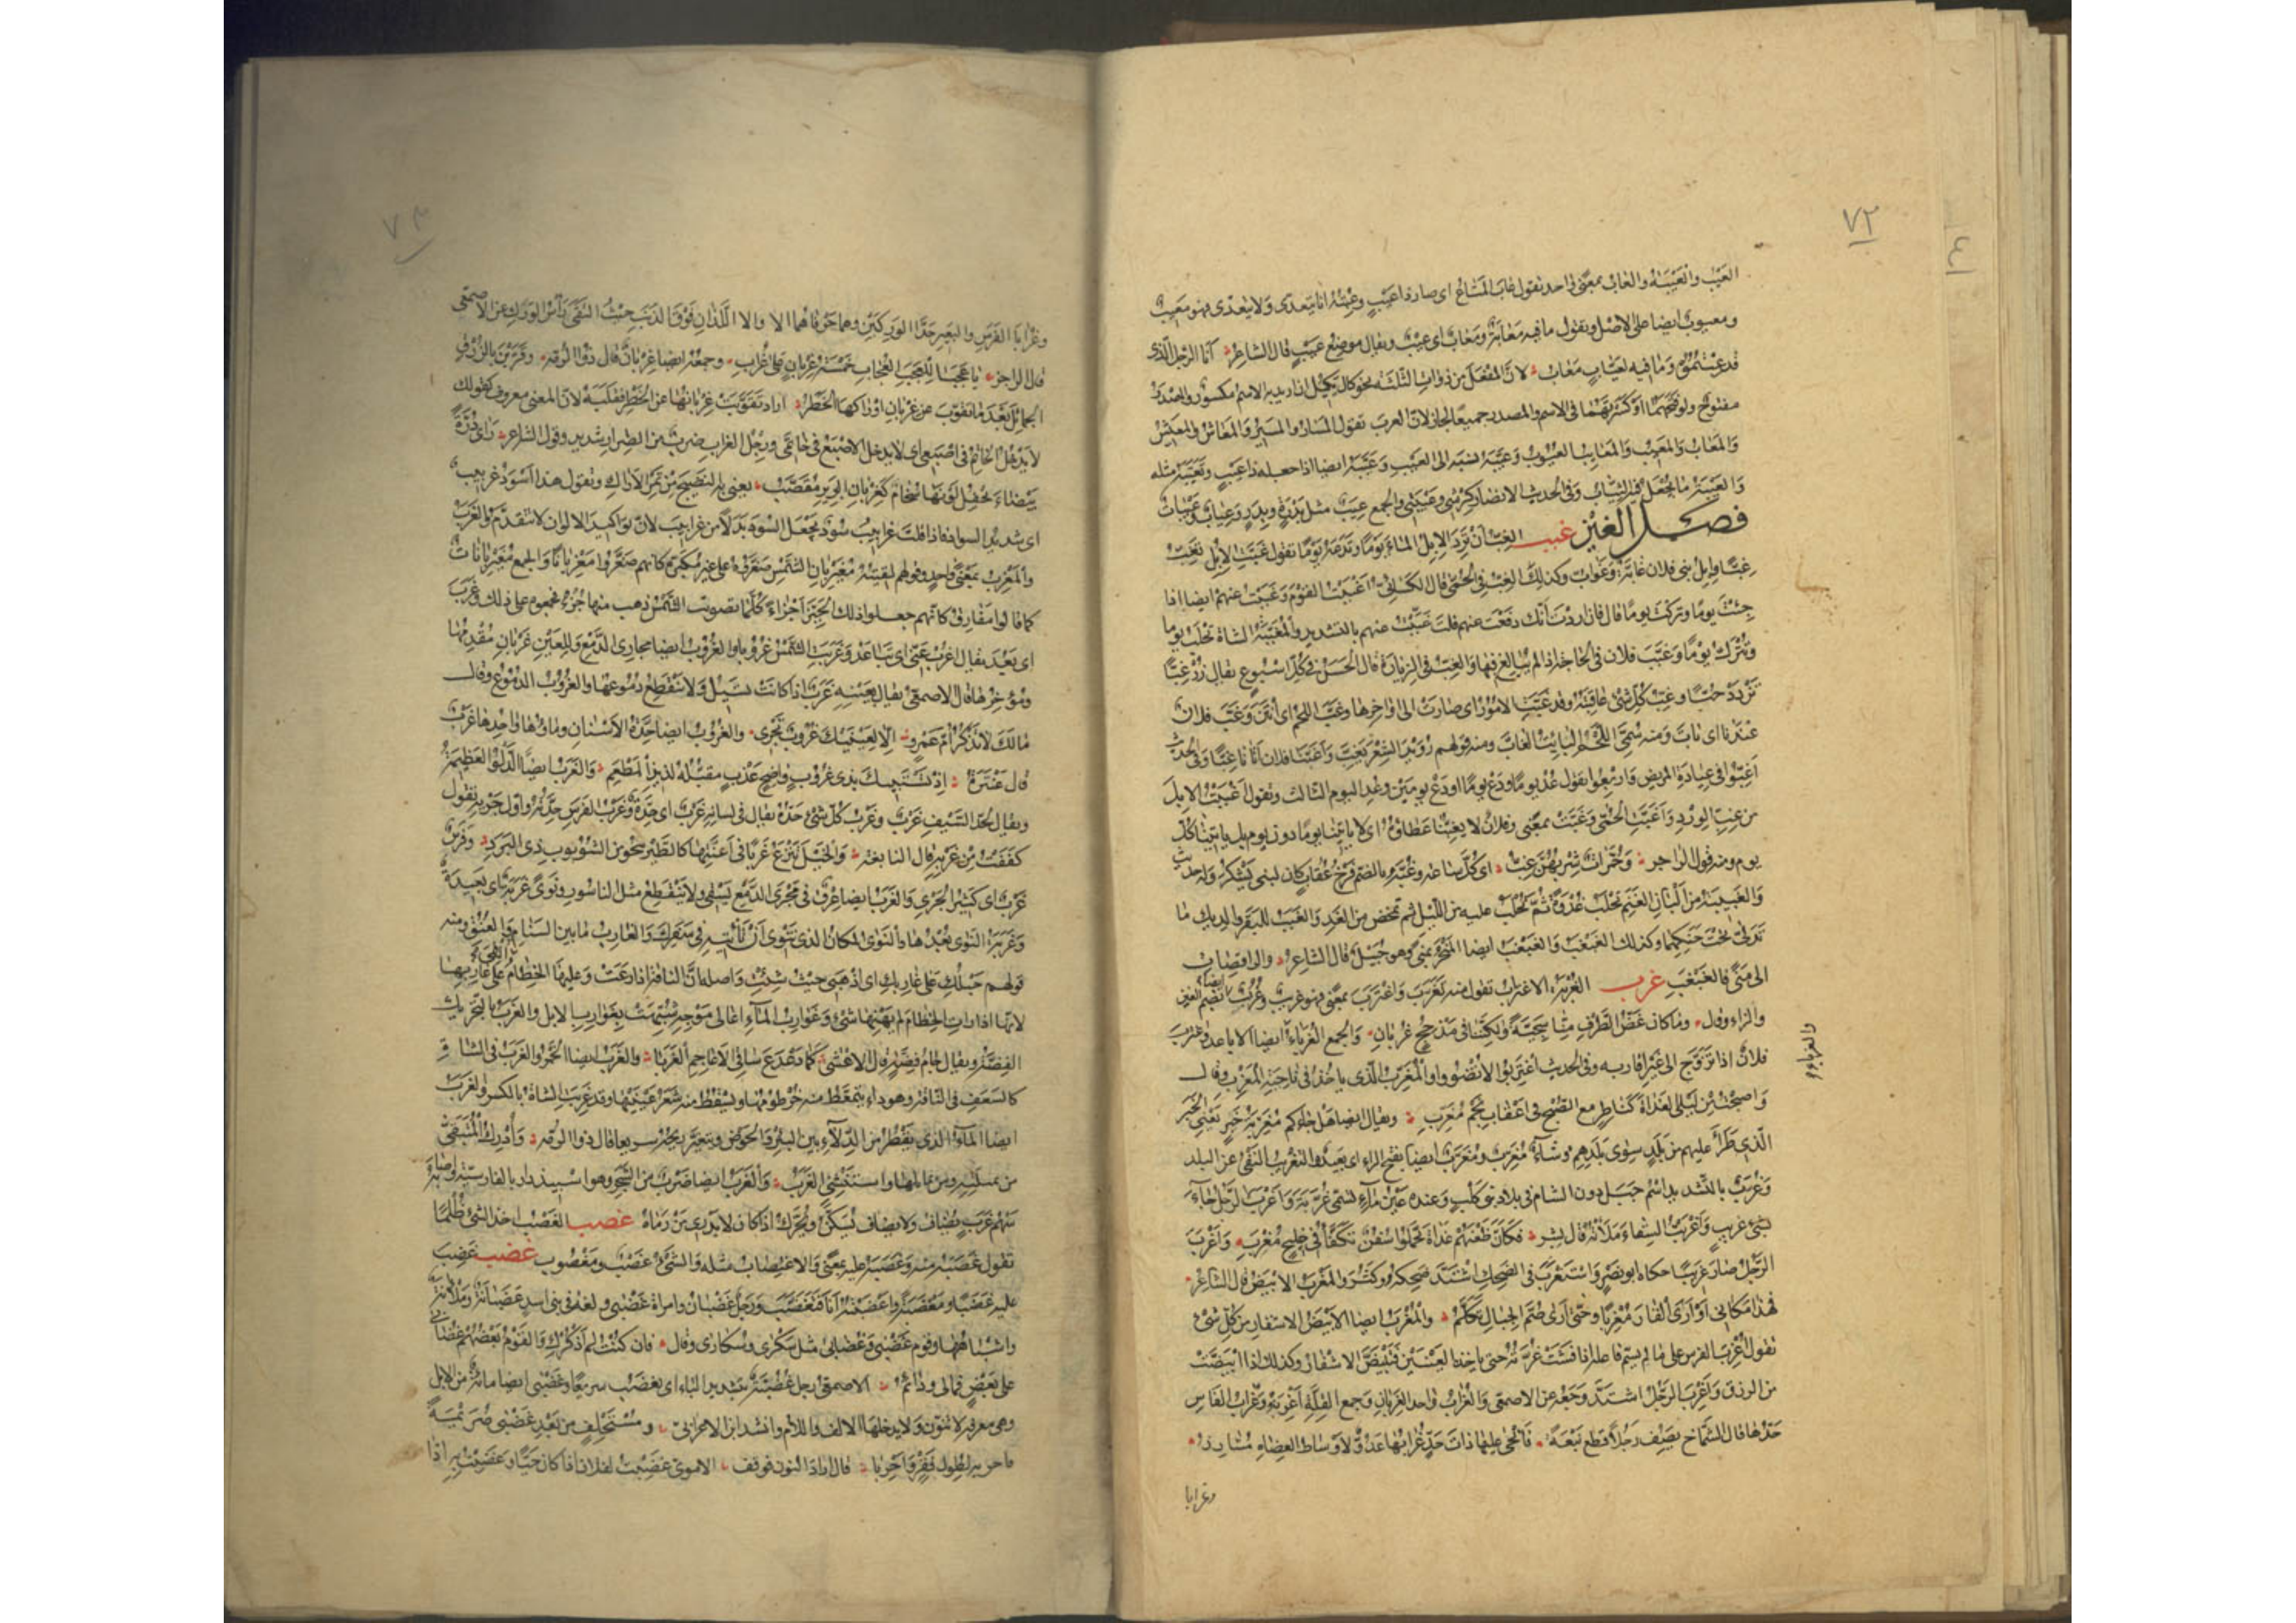 ٧٢
العَيْبُ والعَيْبَةُ والعَابُ بمعنًى واحد تقول عَابَ المَتَاعُ اى صار ذا عَيْبٍ وعِبْتُهُ انا يتعدّى ولا يتعدّى فهو مَعِيبٌ
ومعيوب ايضا على الاصل وتقول ما فيه مَعَابَةٌ ومَعَابٌ اى عيبٌ ويقال موضع عَيْبٍ قال الشاعر انا الرجل الّذى
قد عِبْتُمُوهُ وما فيه لعَيَّابٍ مَعَابُ لانّ المَفْعَل من ذوات الثلثة نحو كال يكيل ان اريد به الاسم مكسور والمصدر
مفتوح ولو فتحتهما او كسرتهما فى الاسم والمصدر جميعًا لجاز لانّ العرب تقول المَسَار والمَسِير والمَعَاش والمَعِيش
والمَعَاب والمَعِيب والمَعَايِب العيوب وعَيَّبَهُ نسبه الى العيب وعَيَّبَهُ ايضا اذا جعله ذا عيبٍ وتَعَيَّبَهُ مثله
والعَيْبَةُ ما يُجعل فيه الثياب وفى الحديث الانصار كَرِشى وعَيْبَتى والجمع عِيَبٌ مثل بَدْرَةٍ وبِدَرٍ وعِيَاب وعَيْبَات
فصل الغين غبب الغِبُّ ان تَرِدَ الابل الماءَ يومًا وتدعه يومًا تقول غَبَّتِ الابل تَغِبُّ
غِبًّا وابل بنى فلان غابَّةٌ وغَوَابُّ وكذلك الغِبُّ فى الحُمَّى قال الكسائى اَغْبَبْتُ القومَ وغَبَبْتُ عنهم ايضا اذا
جئتَ يومًا وتركتَ يومًا قال فان اردت انّك دفعت عنهم قلت غَبَّبْتُ عنهم بالتشديد والمُغَبَّبَةُ الشاة تُحْلَب يوما
وتُترك يومًا وغَبَّبَ فلان فى الحاجة اذا لم يبالغ فيها والغِبُّ فى الزيارة قال الحسن فى كلّ اسبوع يقال زُرْ غِبًّا
تَزْدَدْ حُبًّا وغِبُّ كلّ شىء عاقبته وقد غَبَّتِ الامورُ اى صارت الى اواخرها وغَبَّ اللحم اى اَنْتَنَ وغَبَّ فلان
عندنا اى بات ومنه سُمّى اللحم البائت الغابّ ومنه قولهم رُوَيْدَ الشِّعْرَ يَغِبّ واَغَبَّنا فلان اتانا غِبًّا وفى الحديث
اَغِبُّوا فى عيادة المريض واربعوا يقول عُدْ يومًا ودَعْ يومًا او دع يومين وعُدِ اليوم الثالث وتقول اَغْبَبْتُ الابل
من غِبّ الوِرْد واَغَبَّتِ الحُمّى وغَبَّتْ بمعنًى وفلان لا يُغِبُّنا عطاؤه اى لا يأتينا يومًا دون يوم بل يأتينا كلّ
يوم ومنه قول الراجز وحُمَّرَاتٌ شُرْبُهُنَّ غِبُّ اى كلّ ساعة وغُبَّةُ بالضم فرخ عُقاب كان لبنى يشكر وله حديث
والغَبِيبَةُ من البان الغنم تُحلب غُدْوَةً ثمّ تُحلب عليه من الليل ثم تمخض من الغد والغَبَبُ للبقر والديك ما
تدلّى تحت حنكهما وكذلك الغَبْغَبُ والغَبْغَبُ ايضا المَنْحَر بمنى وهو جبيل قال الشاعر والراقصات
الى منى فالغَبْغَبِ غرب الغُرْبَةُ الاغتراب تقول منه تَغَرَّبَ واغْتَرَبَ بمعنًى فهو غريب وغُرُبٌ ايضا بضم الغين
والراء وقال وما كان غَضُّ الطَّرْفِ منّا سَجِيَّةً ولكنّنا فى مَذْحِجٍ غُرُبانِ والجمع الغُرَباءُ ايضا الاباعد واغترب
والغرباء
فلانٌ اذا تزوّج الى غير اقاربه وفى الحديث اغْتَرِبُوا لا تُضْوُوا والمُغَرِّبُ الّذى يأخذ فى ناحية المغرب وقال
واصبحتُ من ليلى الغَدَاةَ كناظرٍ مع الصُّبْح فى اعقاب نجمٍ مُغَرِّبِ ويقال ايضا هل جاءكم مُغَرِّبَةُ خَبَرٍ يعنى الخبر
الّذى طرأ عليهم من بلدٍ سوى بلدهم وشَأْوٌ مُغَرِّبٌ ومُغَرَّبٌ ايضا بفتح الراء اى بعيد والتغريب النفى عن البلد
وغُرَّبٌ بالتشديد اسم جبل دون الشام فى بلاد بنى كلب وعنده عين ماءٍ تسمّى غُرَّبَة واَغْرَبَ الرجل جاء
بشىء غريبٍ واَغْرَبْتُ السِّقاءَ مَلَأْتُه قال بشر فكأنّ ظُعْنَهُمُ غداةَ تحمّلوا سُفُنٌ تَكَفَّأُ فى خليجٍ مُغْرَبِ واَغْرَبَ
الرجل صار غريبًا حكاه ابو نصر واستغرب فى الضحك اشتدّ ضحكه وكثر والمُغْرَب الابيض قال الشاعر
فهذا مكانى او ارى القارَ مُغْرَبًا وحتّى ارى صُمَّ الجبالِ تَكَلَّمُ والمُغْرَب ايضا الابيض الاشفار من كلّ شىء
تقول اُغْرِبَ الفرس على ما لم يسمّ فاعله اذا فشت غُرَّتُه حتى تأخذ العينين فتبيضّ الاشفار وكذلك اذا ابيضّت
من الزرق واُغْرِبَ الرجل اشتدّ وجعه عن الاصمعى والغُراب واحد الغِرْبان وجمع القلّة اَغْرِبَة وغُراب الفأس
حدّها قال الشمّاخ يصف رجلًا قطع نبعةً فأنحى عليها ذاتَ حَدٍّ غُرابُها عَدُوٌّ لاوساطِ العِضاهِ مُشارِزُ
وغرابا
٧٣
وغُرابا الفرس والبعير حدّا الوركين وهما حرفاهما الا والا اللذان فوق الذنب حيث التقى رأس الورك عن الاصمعى
قال الراجز يا عَجَبًا للعَجَبِ العُجابِ خمسةُ غِرْبانٍ على غُرابِ وجمعه ايضا غِرْبانٌ قال ذو الرمّة وقَرَّبْنَ بالزُّرْقِ
الجمائلَ بعد ما تقوّب عن غِرْبانِ اوراكها الخَطْرُ اراد تقوّبت غربانها عن الخطر فقلبه لانّ المعنى معروف كقولك
لا يدخل الخاتم فى اصبعى اى لا يدخل الاصبع فى خاتمى ورجل الغراب ضرب من الصِّرار شديد وقول الشاعر رأى دُرَّةً
بيضاءَ يَحْفِلُ لونَها سُخامٌ كغِرْبانِ البَرِيرِ مُقَصَّبُ يعنى به النضيج من ثمر الاراك وتقول هذا اَسْوَدُ غِرْبِيب
اى شديد السواد فاذا قلت غرابيبُ سُودٌ تجعل السود بدلًا من غرابيب لانّ تواكيد الالوان لا تتقدّم والغَرْبُ
والمَغْرِبُ بمعنًى واحد وقولهم لقيتُه مُغَيْرِبانَ الشمس صغّروه على غير مكبّره كأنهم صغّروا مَغْرِبانًا والجمع مُغَيْرِبانات
كما قالوا مَفارِق كأنّهم جعلوا ذلك الحيّز اجزاءً كلّما تصوبت الشمس ذهب منها جزء فجمعوه على ذلك وغَرَبَ
اى بَعُدَ يقال اغْرُبْ عنّى اى تباعد وغَرَبَتِ الشمس غُرُوبًا والغُرُوبُ ايضا مجارى الدمع وللعين غَرْبانِ مُقْدِمُها
ومُؤْخِرُها قال الاصمعى يقال بعينه غَرْبٌ اذا كانت تسيل ولا تنقطع دموعها والغُرُوب الدموع وقال
مالكَ لا تذكرُ امَّ عَمْرِو الّا لعَيْنَيْكَ غُرُوبٌ تجرى والغُرُوبُ ايضا حِدّة الاسنان وماؤها واحدها غَرْب
قال عنترة اذ تستبيك بذى غُرُوبٍ واضحٍ عذبٍ مُقَبَّلُه لذيذِ المَطْعَمِ والغَرْبُ ايضا الدَّلْو العظيمة
ويقال لحدّ السيف غَرْبٌ وغَرْبُ كلّ شىء حدّه يقال فى لسانه غَرْبٌ اى حِدّة وغَرْبُ الفرس حدّته واوّل جريه تقول
كَفَفْتُ من غَرْبِه قال النابغة والخيلُ تَنْزِعُ غَرْبًا فى اَعِنَّتِها كالطيرِ تنجو من الشُّؤْبُوبِ ذى البَرَدِ وفرس
غَرْبٌ اى كثير الجرى والغَرْبُ ايضا عِرق فى مجرى الدمع يسقى ولا ينقطع مثل الناسور ونَوًى غَرْبَةٌ اى بعيدة
وغَرْبَةُ النوى بُعْدها والنوى المكان الذى تنوى ان تأتيه فى سفرك والغارب ما بين السنام والعنق ومنه
قولهم حَبْلُكِ على غارِبِكِ اى اذهبى حيث شئتِ واصله انّ الناقة اذا رعت وعليها الخطام اُلقى على غاربها
لانّها اذا رأت الخطام لم يهنئها شىء وغوارب الماء اعالى موجه شبّهت بغوارب الابل والغَرَبُ بالتحريك
الفضّة ويقال جام فضّة قال الاعشى كما دَعْدَعَ ساقى الاعاجمِ الغَرَبا والغَرَبُ ايضا الخمر والغَرَبُ فى الشاة
كالسَّعَف فى الناقة وهو داء يتمعّط منه خرطومها ويسقط منه شعر عينيها وقد غَرِبَتِ الشاة بالكسر والغَرَب
ايضا الماء الذى يقطر من الدِّلاء بين البئر والحوض ويتغيّر ريحه سريعا قال ذو الرمّة واُدْرِكَ المُتَبَقَّى
من ثميلته ومن ثمائلها واستنشئ الغَرَبُ والغَرَبُ ايضا ضرب من الشجر وهو اسبيذدار بالفارسيّة واصابه
سَهْمُ غَرَبٍ يضاف ولا يضاف يُسَكّن ويُحرّك اذا كان لا يدرى من رماه غصب الغَصْبُ اخذ الشىء ظلمًا
تقول غَصَبَهُ منه وغَصَبَهُ عليه بمعنًى والاغتصاب مثله والشىء غَصْبٌ ومَغْصُوب غضب غَضِبَ
عليه غَضَبًا ومَغْضَبَةً واَغْضَبْتُه انا فتغضّب ورجل غضبان وامرأة غَضْبَى ولغة فى بنى اسد غضبانة وملآنة
واشباههما وقوم غَضْبَى وغَضابَى مثل سَكْرَى وسُكارَى وقال فان كنتُ لم اذكرك والقومُ بعضُهم غَضابَى
على بعضٍ فمالى وذائمُ الاصمعى رجل غُضُبَّة بتشديد الباء اى يغضب سريعًا وغَضْبَى ايضا مائة من الابل
وهى معرفة لا تنوّن ولا يدخلها الالف واللام وانشد ابن الاعرابىّ ومُسْتَخْلِفٍ من بعد غَضْبَى صُرَيْمَةً
فاحرِ به لطول فقرٍ واحريا قال اراد النون فوقف الاموىّ غَضِبْتُ لفلان اذا كان حيًّا وغَضِبْتُ به اذا